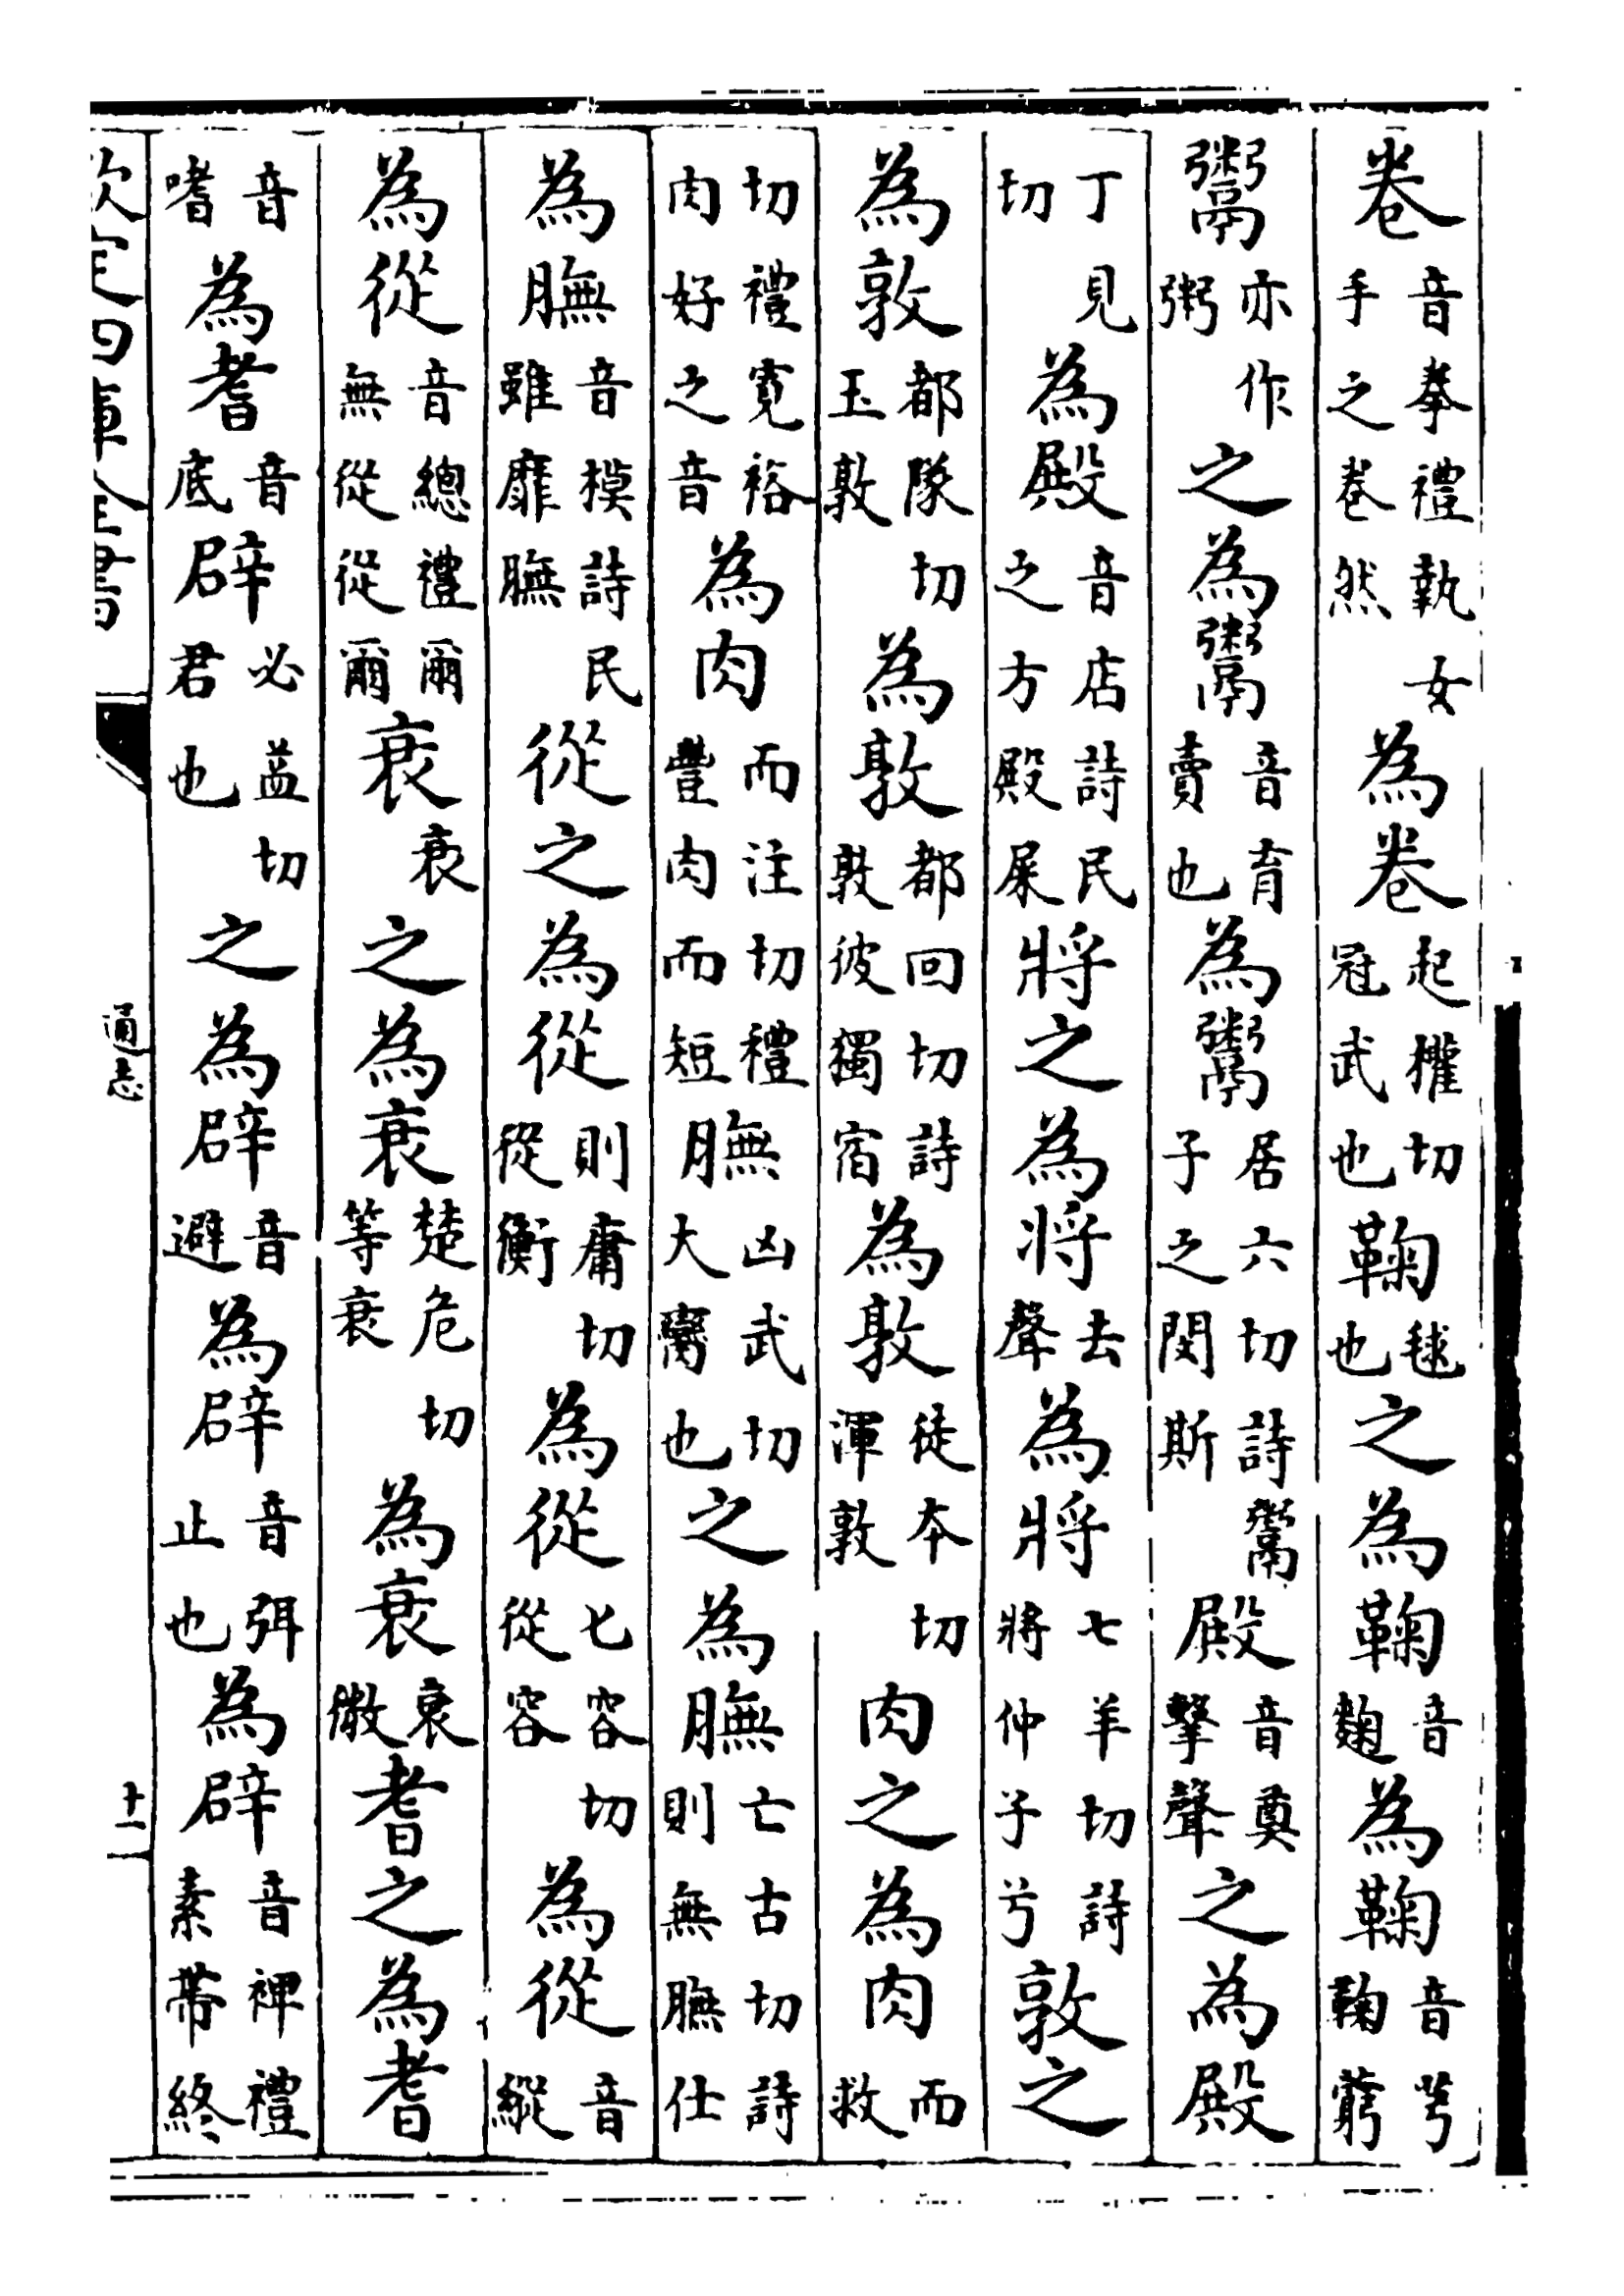 卷音拳禮執女手之卷然為卷起權切冠武也鞠毬也之為鞠音麴為鞠音芎鞠藭
鬻亦作粥之為鬻音育賣也為鬻居六切詩鬻子之閔斯殿音奠擊聲之為殿
丁見切為殿音店詩民之方殿屎將之為將去聲為將七羊切詩將仲子兮敦之
為敦都隊切玉敦為敦都回切詩敦彼獨宿為敦徒本切渾敦肉之為肉而救
切禮寛裕肉好之音為肉而注切禮豐肉而短膴凶武切大臠也之為膴亡古切詩則無膴仕
為膴音模詩民雖靡膴從之為從則庸切從衡為從七容切從容為從音縱
為從音總禮爾無從從爾衰衰之為衰楚危切等衰為衰衰微耆之為耆
音嗜為耆音底辟必益切君也之為辟音避為辟音弭止也為辟音裨禮素帶終
欽定四庫全書
通志
十一